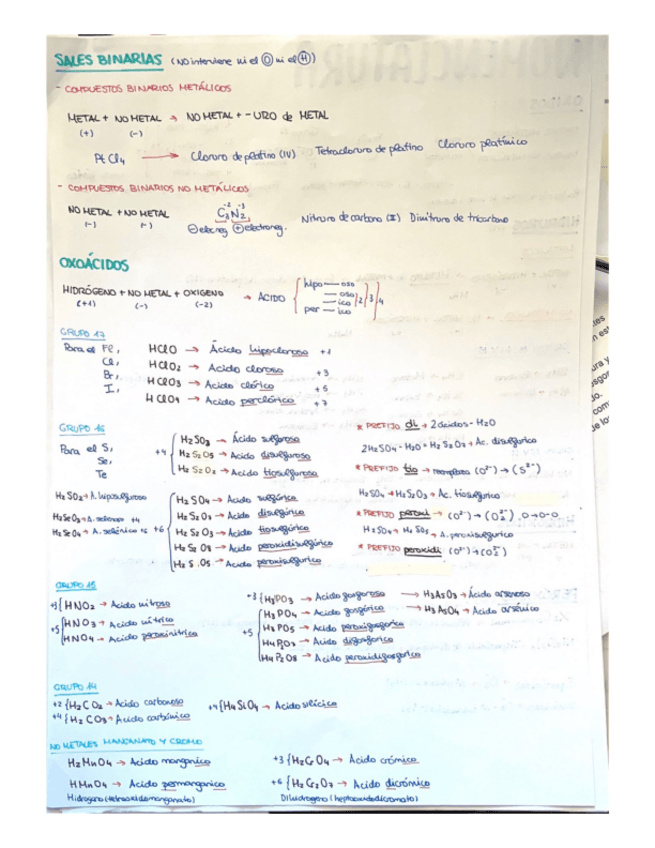 SALES BINARIAS (NO interviene ni el O ni el H)
- COMPUESTOS BINARIOS METÁLICOS
METAL + NO METAL → NO METAL + -URO de METAL
(+) (-)
PtCl4 → Cloruro de platino (IV) Tetracloruro de platino Cloruro platínico
- COMPUESTOS BINARIOS NO METÁLICOS
NO METAL + NO METAL C3N2 Nitruro de carbono (II) Dinitruro de tricarbono
(-) (-) ⊖ elecneg ⊕ electroneg.
OXOÁCIDOS
HIDRÓGENO + NO METAL + OXIGENO → ACIDO
(+1) (-) (-2)
hipo — oso
— oso
— ico
per — ico
2 3 4
GRUPO 17
Para el
Cl,
Br,
I,
HClO → Ácido hipocloroso +1
HClO2 → Acido cloroso +3
HClO3 → Acido clórico +5
HClO4 → Acido perclórico +7
GRUPO 16
Para el S,
Se,
Te
+4
H2SO3 → Ácido sulfuroso
H2S2O5 → Acido disulfuroso
H2S2O2 → Acido tiosulfuroso
* PREFIJO di → 2 acidos - H2O
2H2SO4 - H2O = H2S2O7 → Ac. disulfurico
* PREFIJO tio → (O²⁻) → (S²⁻)
H2SO4 → H2S2O3 → Ac. tiosulfurico
* PREFIJO peroxi → (O²⁻) → (O2²⁻) O → O-O
H2SO4 → H2SO5 → A. peroxisulfurico
* PREFIJO peroxidi: (O²⁻) → (O2²⁻)
H2SO2 → A. hiposulfuroso
H2SeO3 → A. selenioso +4
H2SeO4 → A. selénico +6
+6
H2SO4 → Acido sulfúrico
H2S2O7 → Acido disulfúrico
H2S2O3 → Acido tiosulfúrico
H2S2O8 → Acido peroxidisulfúrico
H2S.O5 → Acido peroxisulfurico
GRUPO 15
+3 HNO2 → Acido nitroso
+5 HNO3 → Acido nítrico
HNO4 → Acido peroxinitrico
+3 H3PO3 → Acido fosforoso → H3AsO3 → Ácido arsenoso
+5 H3PO4 → Acido fosfórico → H3AsO4 → Acido arsénico
H3PO5 → Acido peroxifosforico
H4P2O7 → Acido difosforico
H4P2O8 → Acido peroxidifosforico
GRUPO 14
+2 H2CO2 → Acido carbonoso
+4 H2CO3 → Acido carbónico
+4 H4SiO4 → Acido silícico
NO METALES MANGANATO Y CROMO
H2MnO4 → Acido manganico
HMnO4 → Acido permanganico
Hidrogeno (tetraoxidomanganato)
+3 H2CrO4 → Acido crómico
+6 H2Cr2O7 → Acido dicrómico
Dihidrogeno (heptaoxidodicromato)